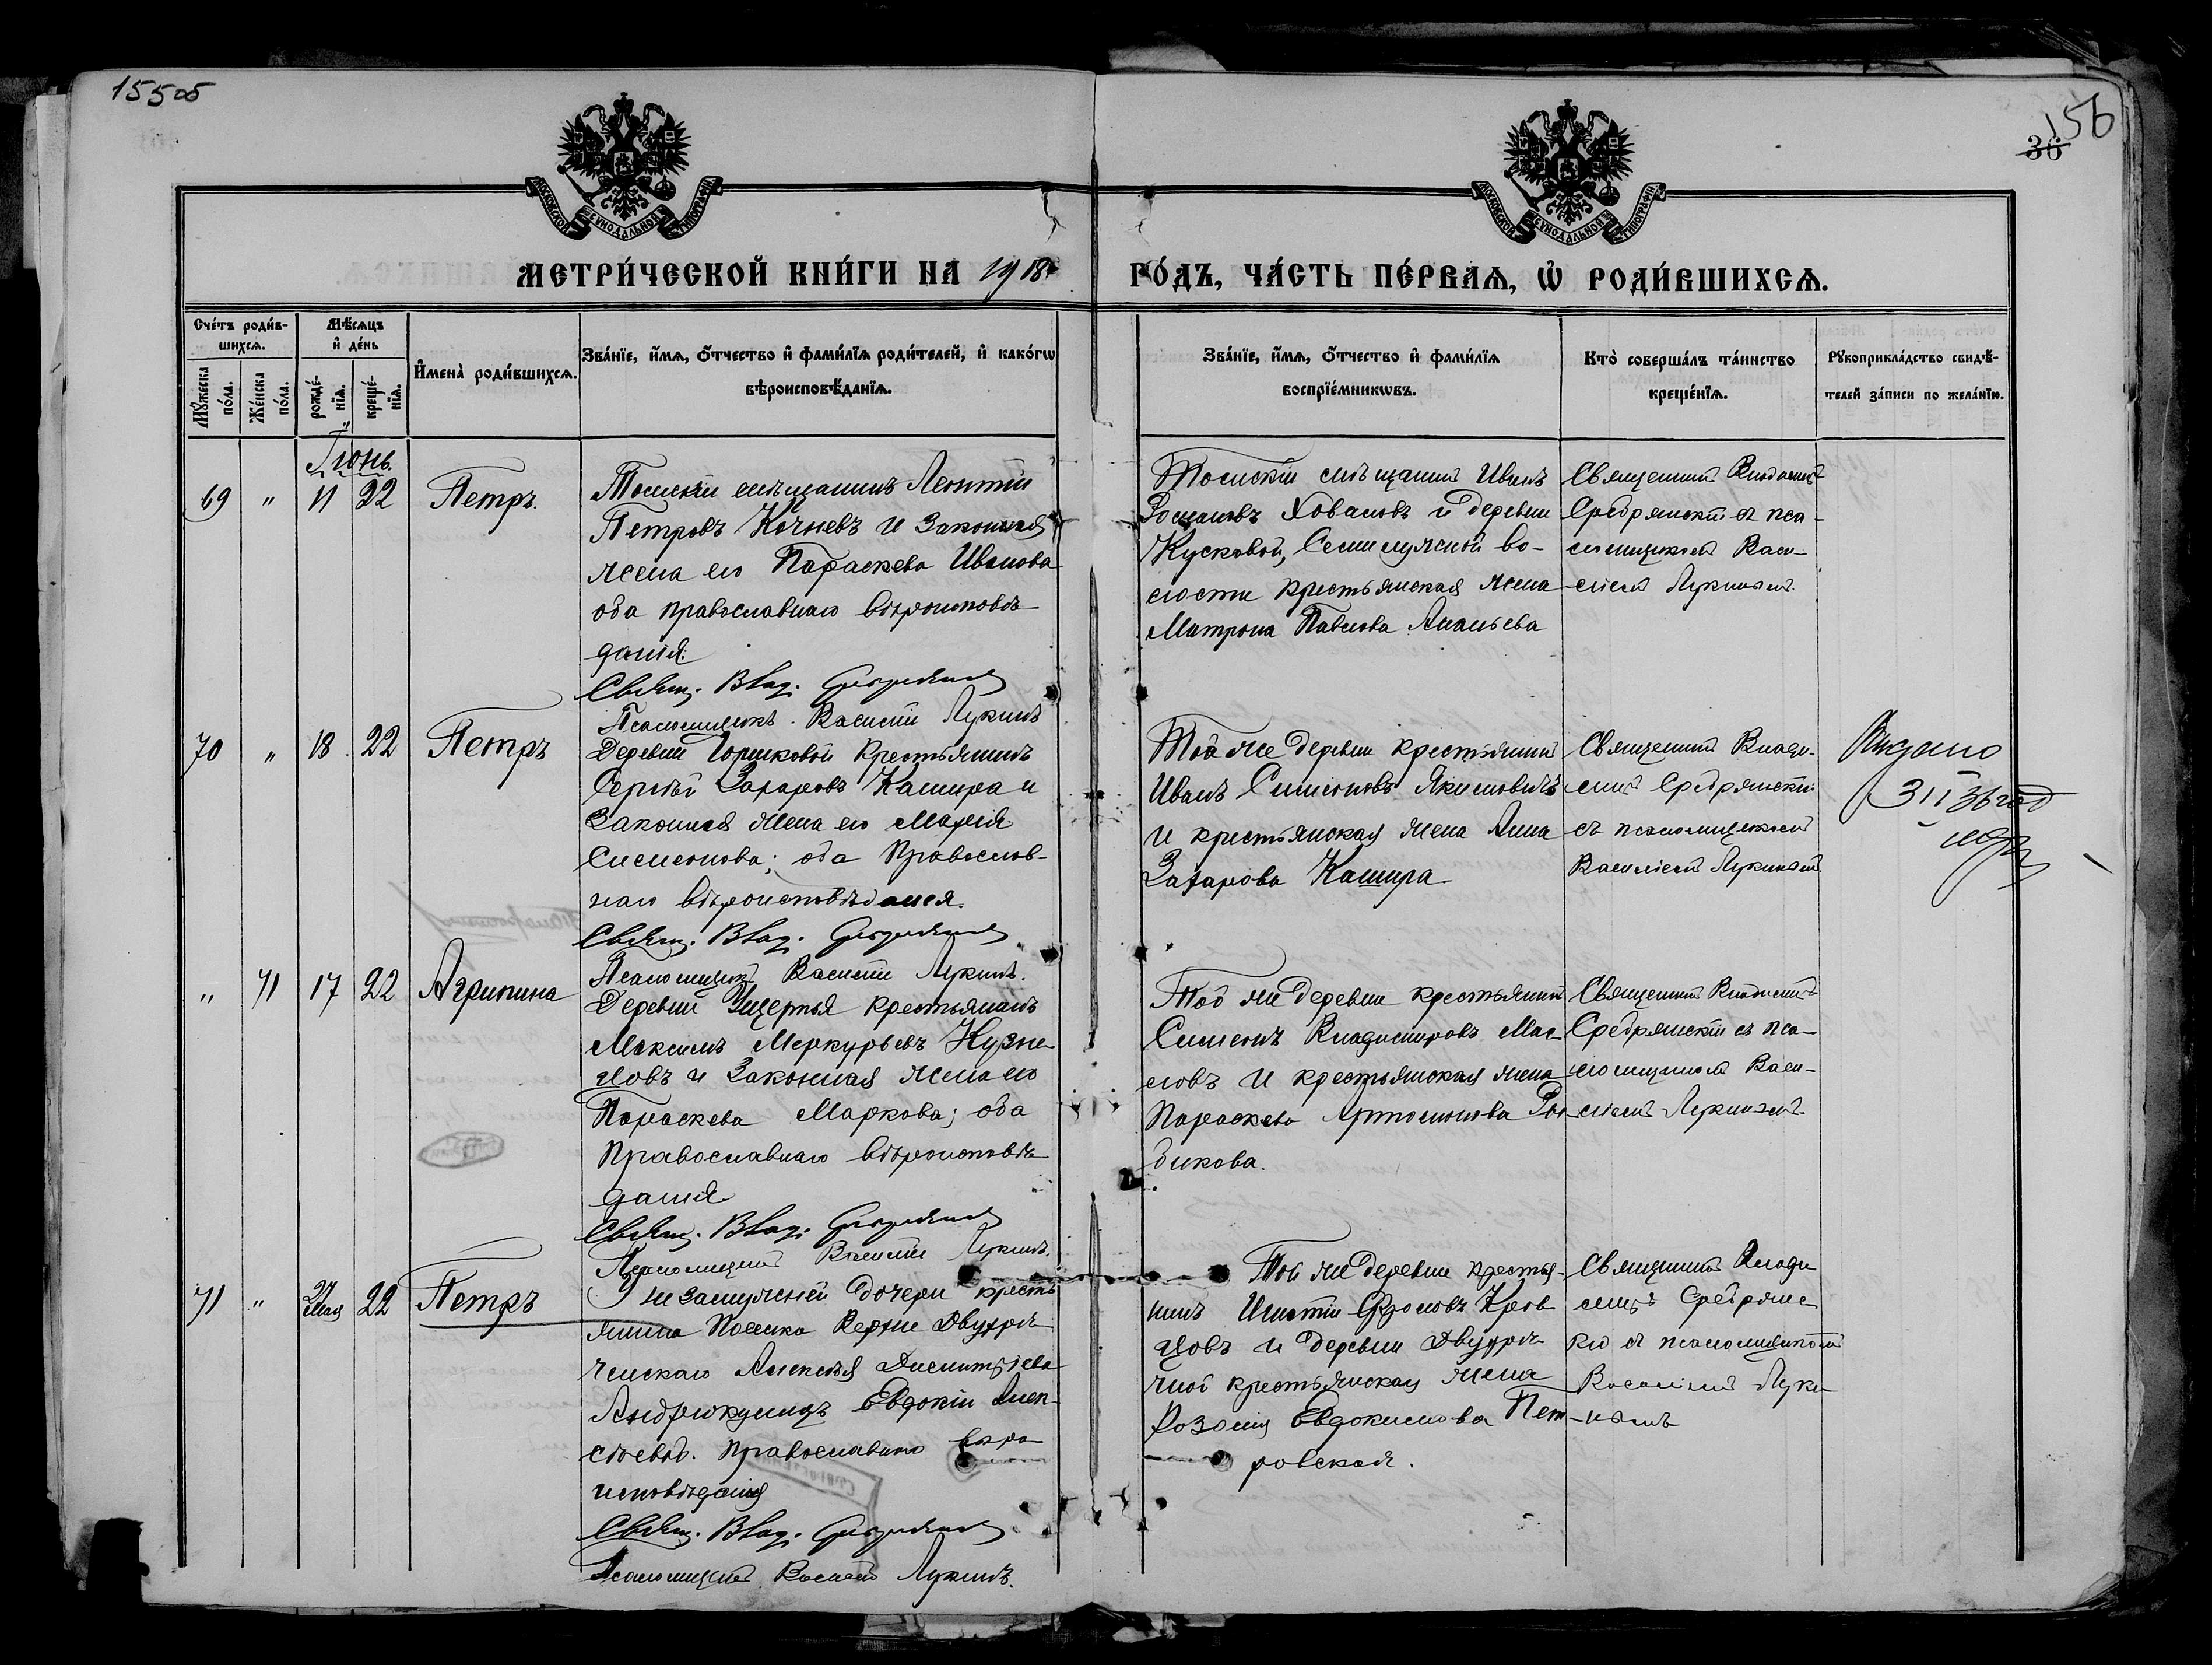 155об
156
36
МОСКОВСКОЙ СѴНОДАЛЬНОЙ ТИПОГРАФІИ
МОСКОВСКОЙ СѴНОДАЛЬНОЙ ТИПОГРАФІИ
МЕТРИ́ЧЕСКОЙ КНИ́ГИ НА 1918
ГО́ДЪ, ЧА́СТЬ ПЕ́РВАѦ, Ѡ҆ РОДИ́ВШИХСѦ.
Сче́тъ роди́в-
шихсѧ.
Мѣ́сѧцъ
и҆ де́нь
Мꙋ́жеска
по́ла.
Же́нска
по́ла.
рожде́-
нїѧ.
креще́-
нїѧ.
И҆мена̀ роди́вшихсѧ.
Зва́нїе, и҆́мѧ, ѻ҆́тчество и҆ фами́лїѧ роди́телей, и҆ како́гѡ
вѣроисповѣ́данїѧ.
Зва́нїе, и҆́мѧ, ѻ҆́тчество и҆ фами́лїѧ
воспрїе́мникѡвъ.
Кто̀ соверша́лъ та́инство
креще́нїѧ.
Рꙋкоприкла́дство свидѣ́-
телей за́писи по жела́нїю.
Іюнь.
69 " 11 22 Петръ.
Томскій мѣщанинъ Леонтій
Петровъ Кочневъ и законная
жена его Параскева Иванова
оба православнаго вѣроисповѣ-
данія.
Свящ. Влад. Сребрянскій
Псаломщикъ Василій Лукинъ
Томскій мѣщанинъ Иванъ
Романовъ Ховановъ и деревни
Кусковой, Семилужной во-
лости крестьянская жена
Матрона Павлова Ананьева
Священникъ Владимиръ
Сребрянскій съ пса-
ломщикомъ Васи-
ліемъ Лукинымъ.
70 " 18 22 Петръ
Деревни Горшковой крестьянинъ
Сергѣй Захаровъ Кашира и
законная жена его Марія
Симеонова; оба православ-
наго вѣроисповѣданія.
Свящ. Влад. Сребрянскій
Псаломщикъ Василій Лукинъ.
Той же деревни крестьянинъ
Иванъ Симеоновъ Якимовичъ
и крестьянская жена Анна
Захарова Кашира
Священникъ Влади-
миръ Сребрянскій
съ псаломщикомъ
Василіемъ Лукинымъ
Выдано
3 II 36 год
" 71 17 22 Агрипина
Деревни Ущерпья крестьянинъ
Максимъ Меркурьевъ Кузне-
цовъ и законная жена его
Параскева Маркова; оба
православнаго вѣроисповѣ-
данія
Свящ. Влад. Сребрянскій
Псаломщикъ Василій Лукинъ.
Той же деревни крестьянинъ
Симеонъ Владимировъ Мас-
ловъ и крестьянская жена
Параскева Артамонова Ры-
бикова.
Священникъ Владимиръ
Сребрянскій съ пса-
ломщикомъ Васи-
ліемъ Лукинымъ.
71 " 27 Мая 22 Петръ
У незамужней дочери кресть
янина Поселка Верхне Двухрѣ-
ченскаго Алексѣя Дмитріева
Евдокіи Алек-
сѣевой. Православнаго вѣро
исповѣданія
Свящ. Влад. Сребрянскій
Псаломщикъ Василій Лукинъ.
Той же деревни крестья-
нинъ Игнатій
и деревни Двухрѣ-
чной крестьянская жена
Евдокимова Пет-
ровская.
Священникъ Влади
миръ Сребрянс
кій съ псаломщикомъ
Василіемъ Луки
нымъ